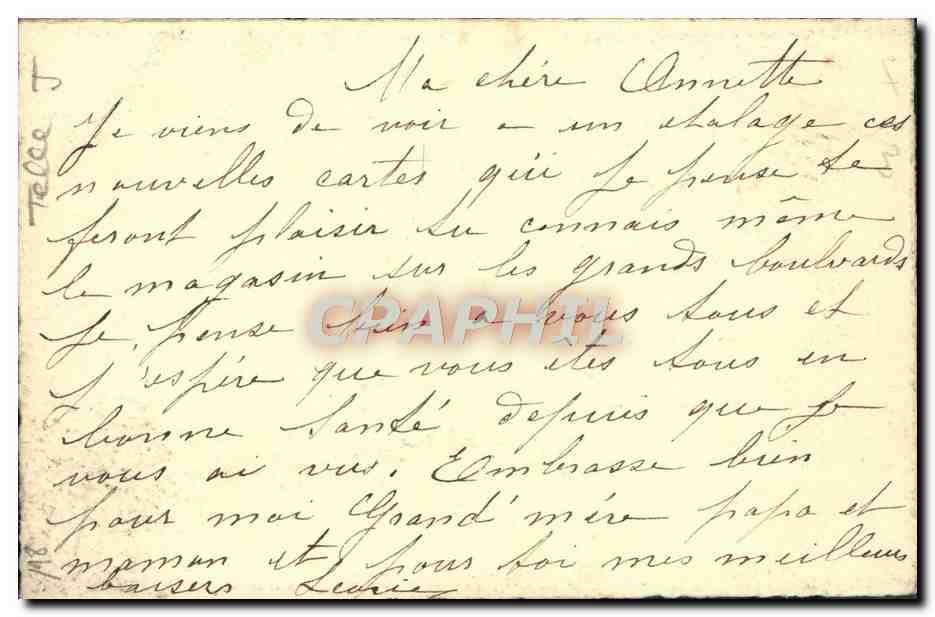 Ma chère Annette
Je viens de voir a un etalage ces
nouvelles cartes qui je pense te
feront plaisir tu connais même
le magasin sur les grands boulevards
Je pense bien a vous tous et
j'espére que vous êtes tous en
bonne santé depuis que je
vous ai vus. Embrasse bien
pour moi Grand'mére papa et
maman et pour toi mes meilleurs
baisers
CPARHIL